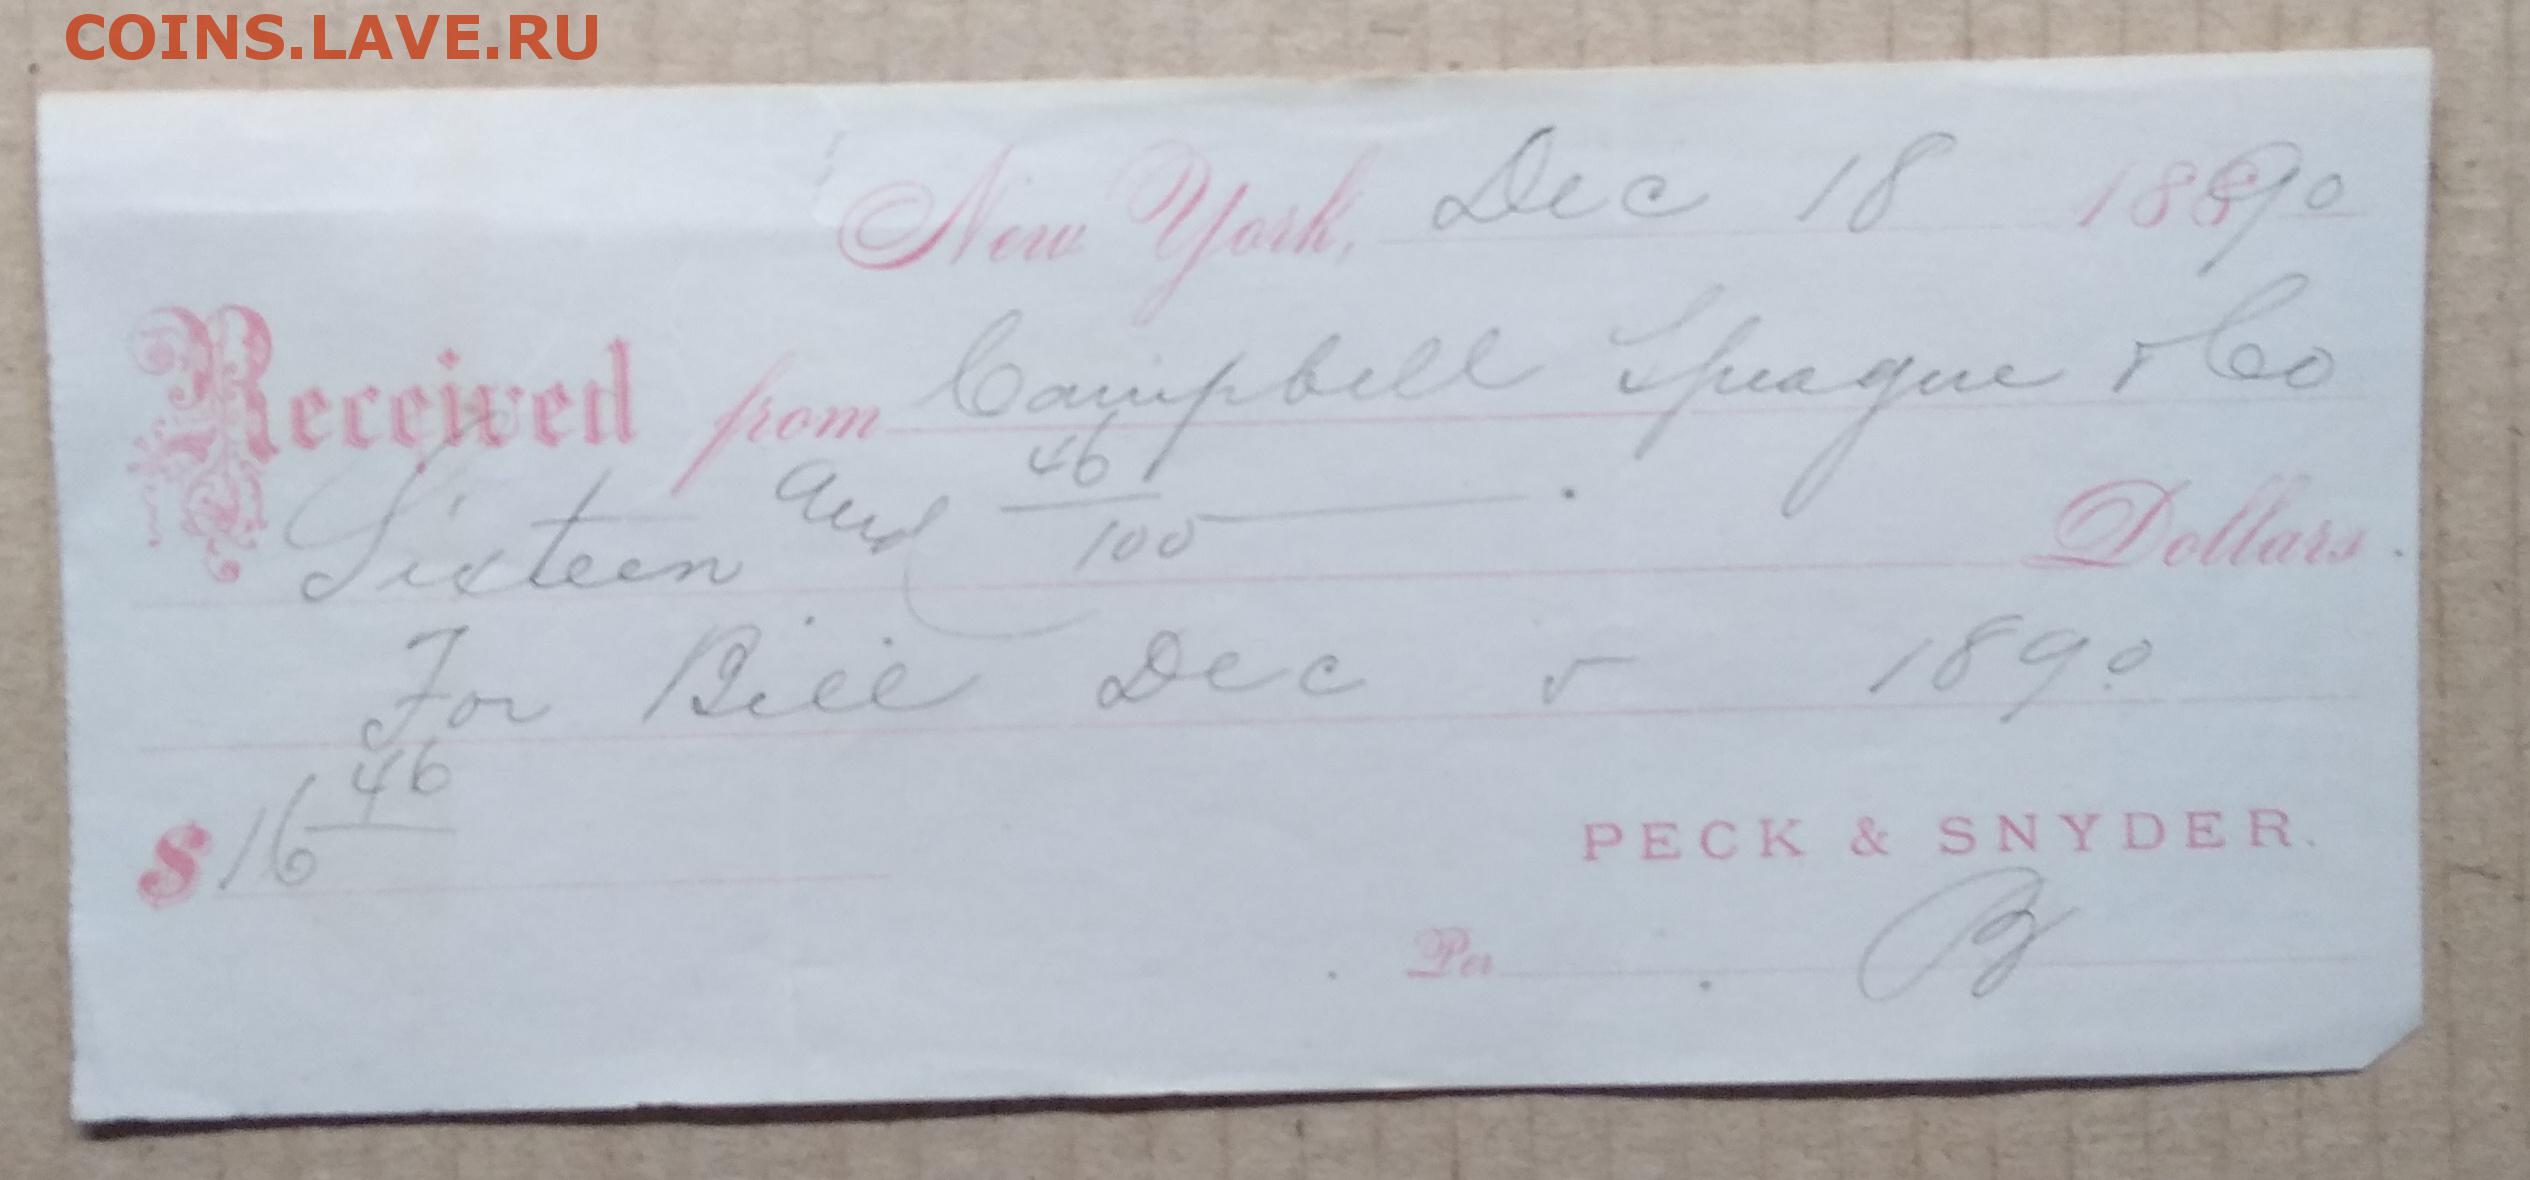 COINS.LAVE.RU
New York, Dec 18 1890
Received from Campbell Sprague & Co
Sixteen and 46/100 Dollars.
For Bill Dec 1890
$16 46
PECK & SNYDER.
Per B